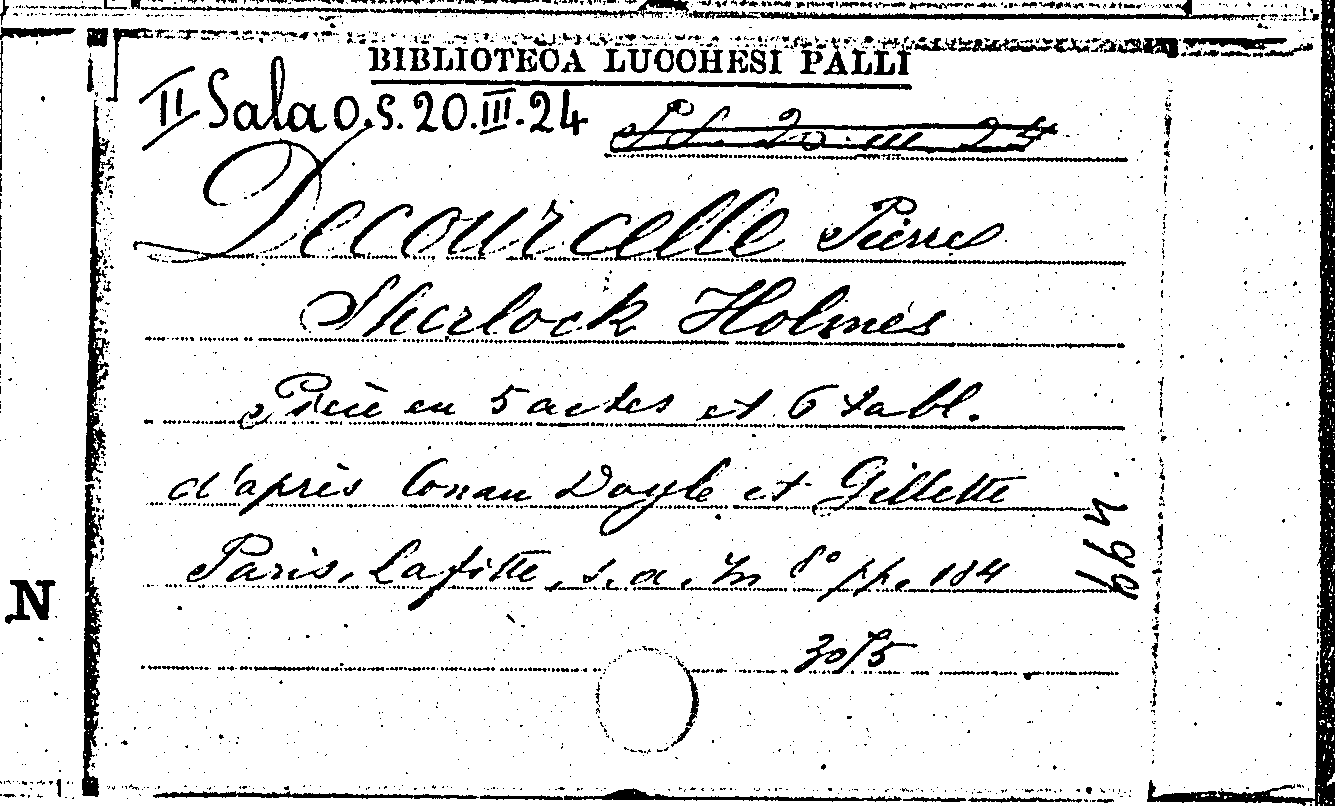 BIBLIOTECA LUCCHESI PALLI
II Sala O.S. 20.III.24
20.III.24
Decourcelle Pierre
Sherlock Holmes
Pièce en 5 actes et 6 tabl.
d'après Conan Doyle et Gillette
Paris, Lafitte, s.a. in 8° pp. 184
N